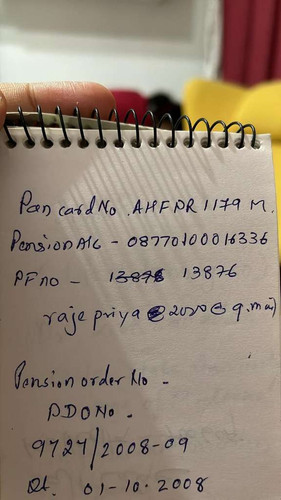 Pan card No. AHFPR1179M.
Pension A/c - 08770100016336
PF no - 13876 13876
raje priya @2020@g.mail
Pension order No -
PDO No -
9727/2008-09
Dt. 01-10-2008